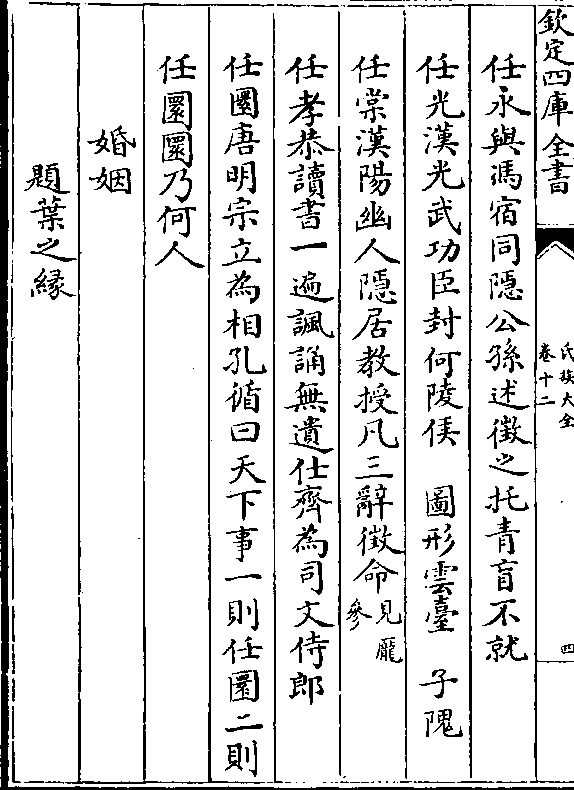 欽定四庫全書
氏族大全
卷十二
四
任永與馮宿同隱公孫述徵之托青盲不就
任光漢光武功臣封何陵侯 圖形雲臺 子隗
任棠漢陽幽人隱居教授凡三辭徵命見龐參
任孝恭讀書一遍諷誦無遺仕齊為司文侍郎
任圜唐明宗立為相孔循曰天下事一則任圜二則
任圜圜乃何人
婚姻
題葉之緣